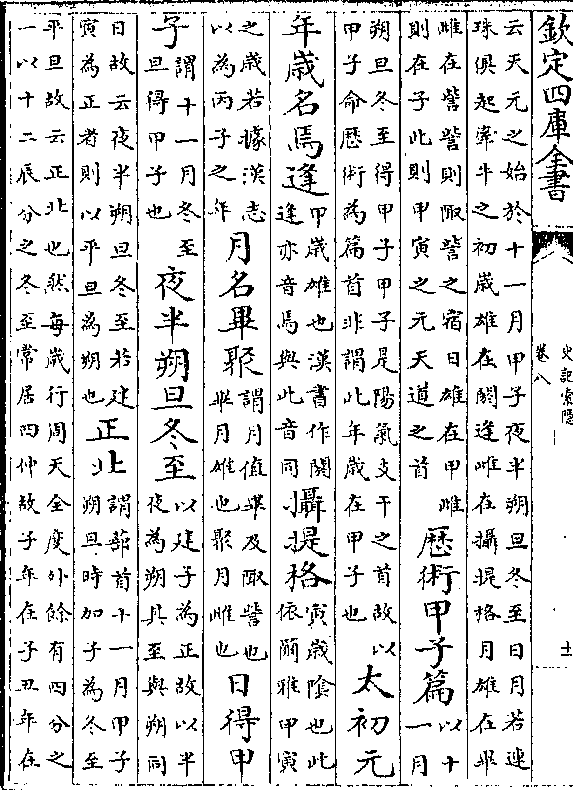 欽定四庫全書
史記索隱
卷八
十一
云天元之始於十一月甲子夜半朔旦冬至日月若連
珠俱起牽牛之初歲雄在閼逢雌在攝提格月雄在畢
雌在訾訾則陬訾之宿日雄在甲雌
則在子此則甲寅之元天道之首
歷術甲子篇
以十
一月
朔旦冬至得甲子甲子是陽氣支干之首故以
甲子命歷術為篇首非謂此年歲在甲子也
太初元
年歲名焉逢
甲歲雄也漢書作閼
逢亦音焉與此音同
攝提格
寅歲陰也此
依爾雅甲寅
之歲若據漢志
以為丙子之年
月名畢聚
謂月值畢及陬訾也
畢月雄也聚月雌也
日得甲
子
謂十一月冬至
旦得甲子也
夜半朔旦冬至
以建子為正故以半
夜為朔其至與朔同
日故云夜半朔旦冬至若建
寅為正者則以平旦為朔也
正北
謂蔀首十一月甲子
朔旦時加子為冬至
平旦故云正北也然每歲行周天全度外餘有四分之
一以十二辰分之冬至常居四仲故子年在子丑年在